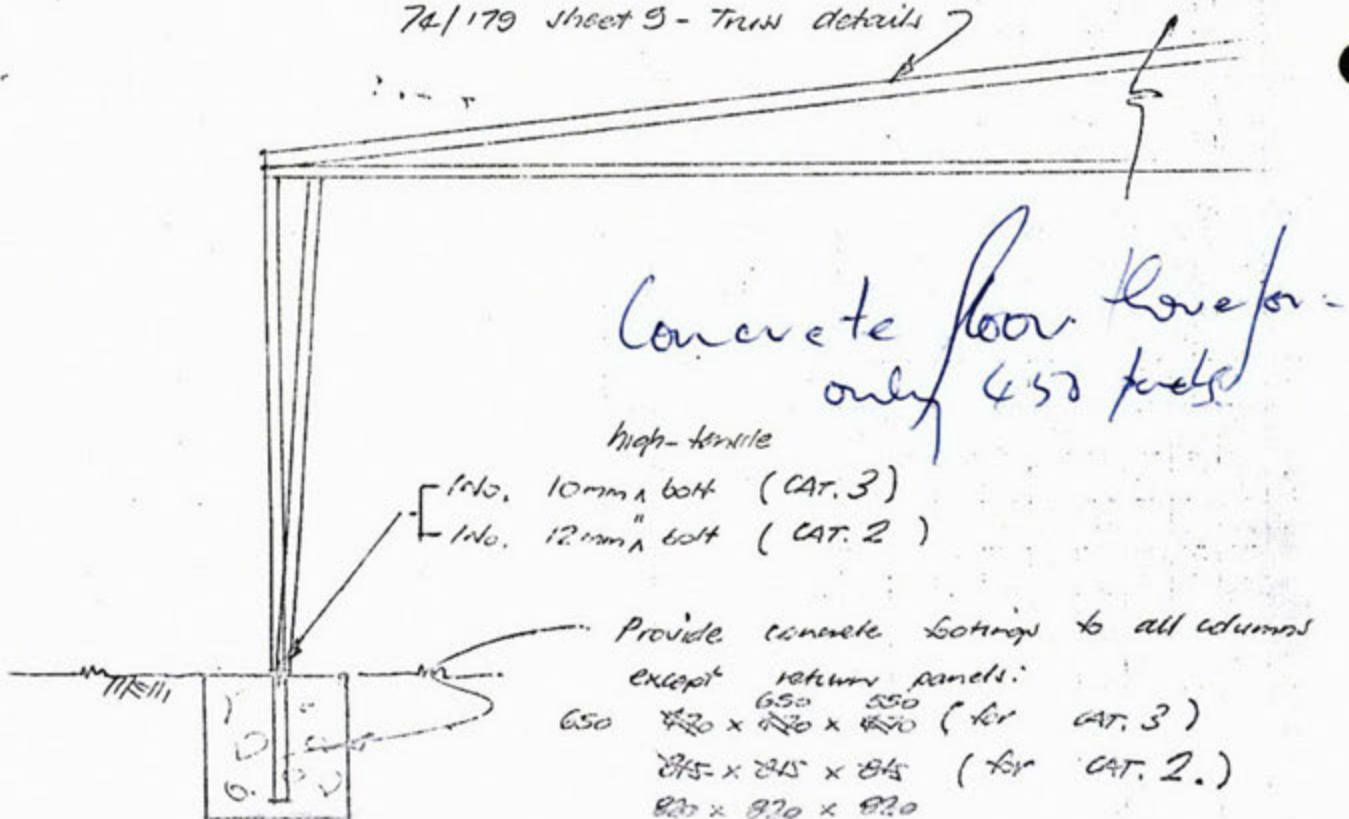 74/179 sheet 9 - Truss details
Concrete floor therefor
only 450 pads
high-tensile
1No. 10mm ʌ bolt (CAT. 3)
1No. 12mm " ʌ bolt (CAT. 2)
Provide concrete footings to all columns
except return panels:
650 650 550
x x (for CAT. 3)
815 x 815 x 815 (for CAT. 2.)
820 x 820 x 820